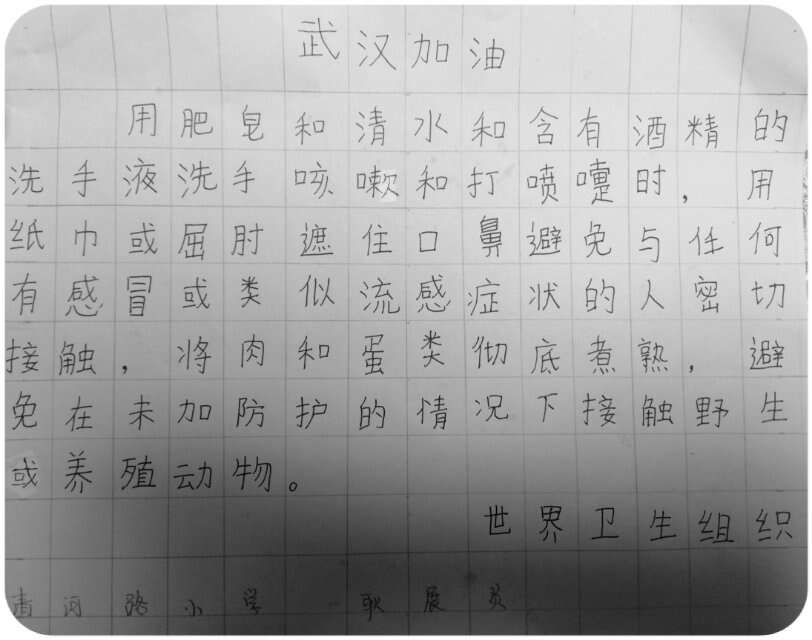 武汉加油
用肥皂和清水和含有酒精的
洗手液洗手咳嗽和打喷嚏时，用
纸巾或屈肘遮住口鼻避免与任何
有感冒或类似流感症状的人密切
接触，将肉和蛋类彻底煮熟，避
免在未加防护的情况下接触野生
或养殖动物。
世界卫生组织
河路小学 耿展